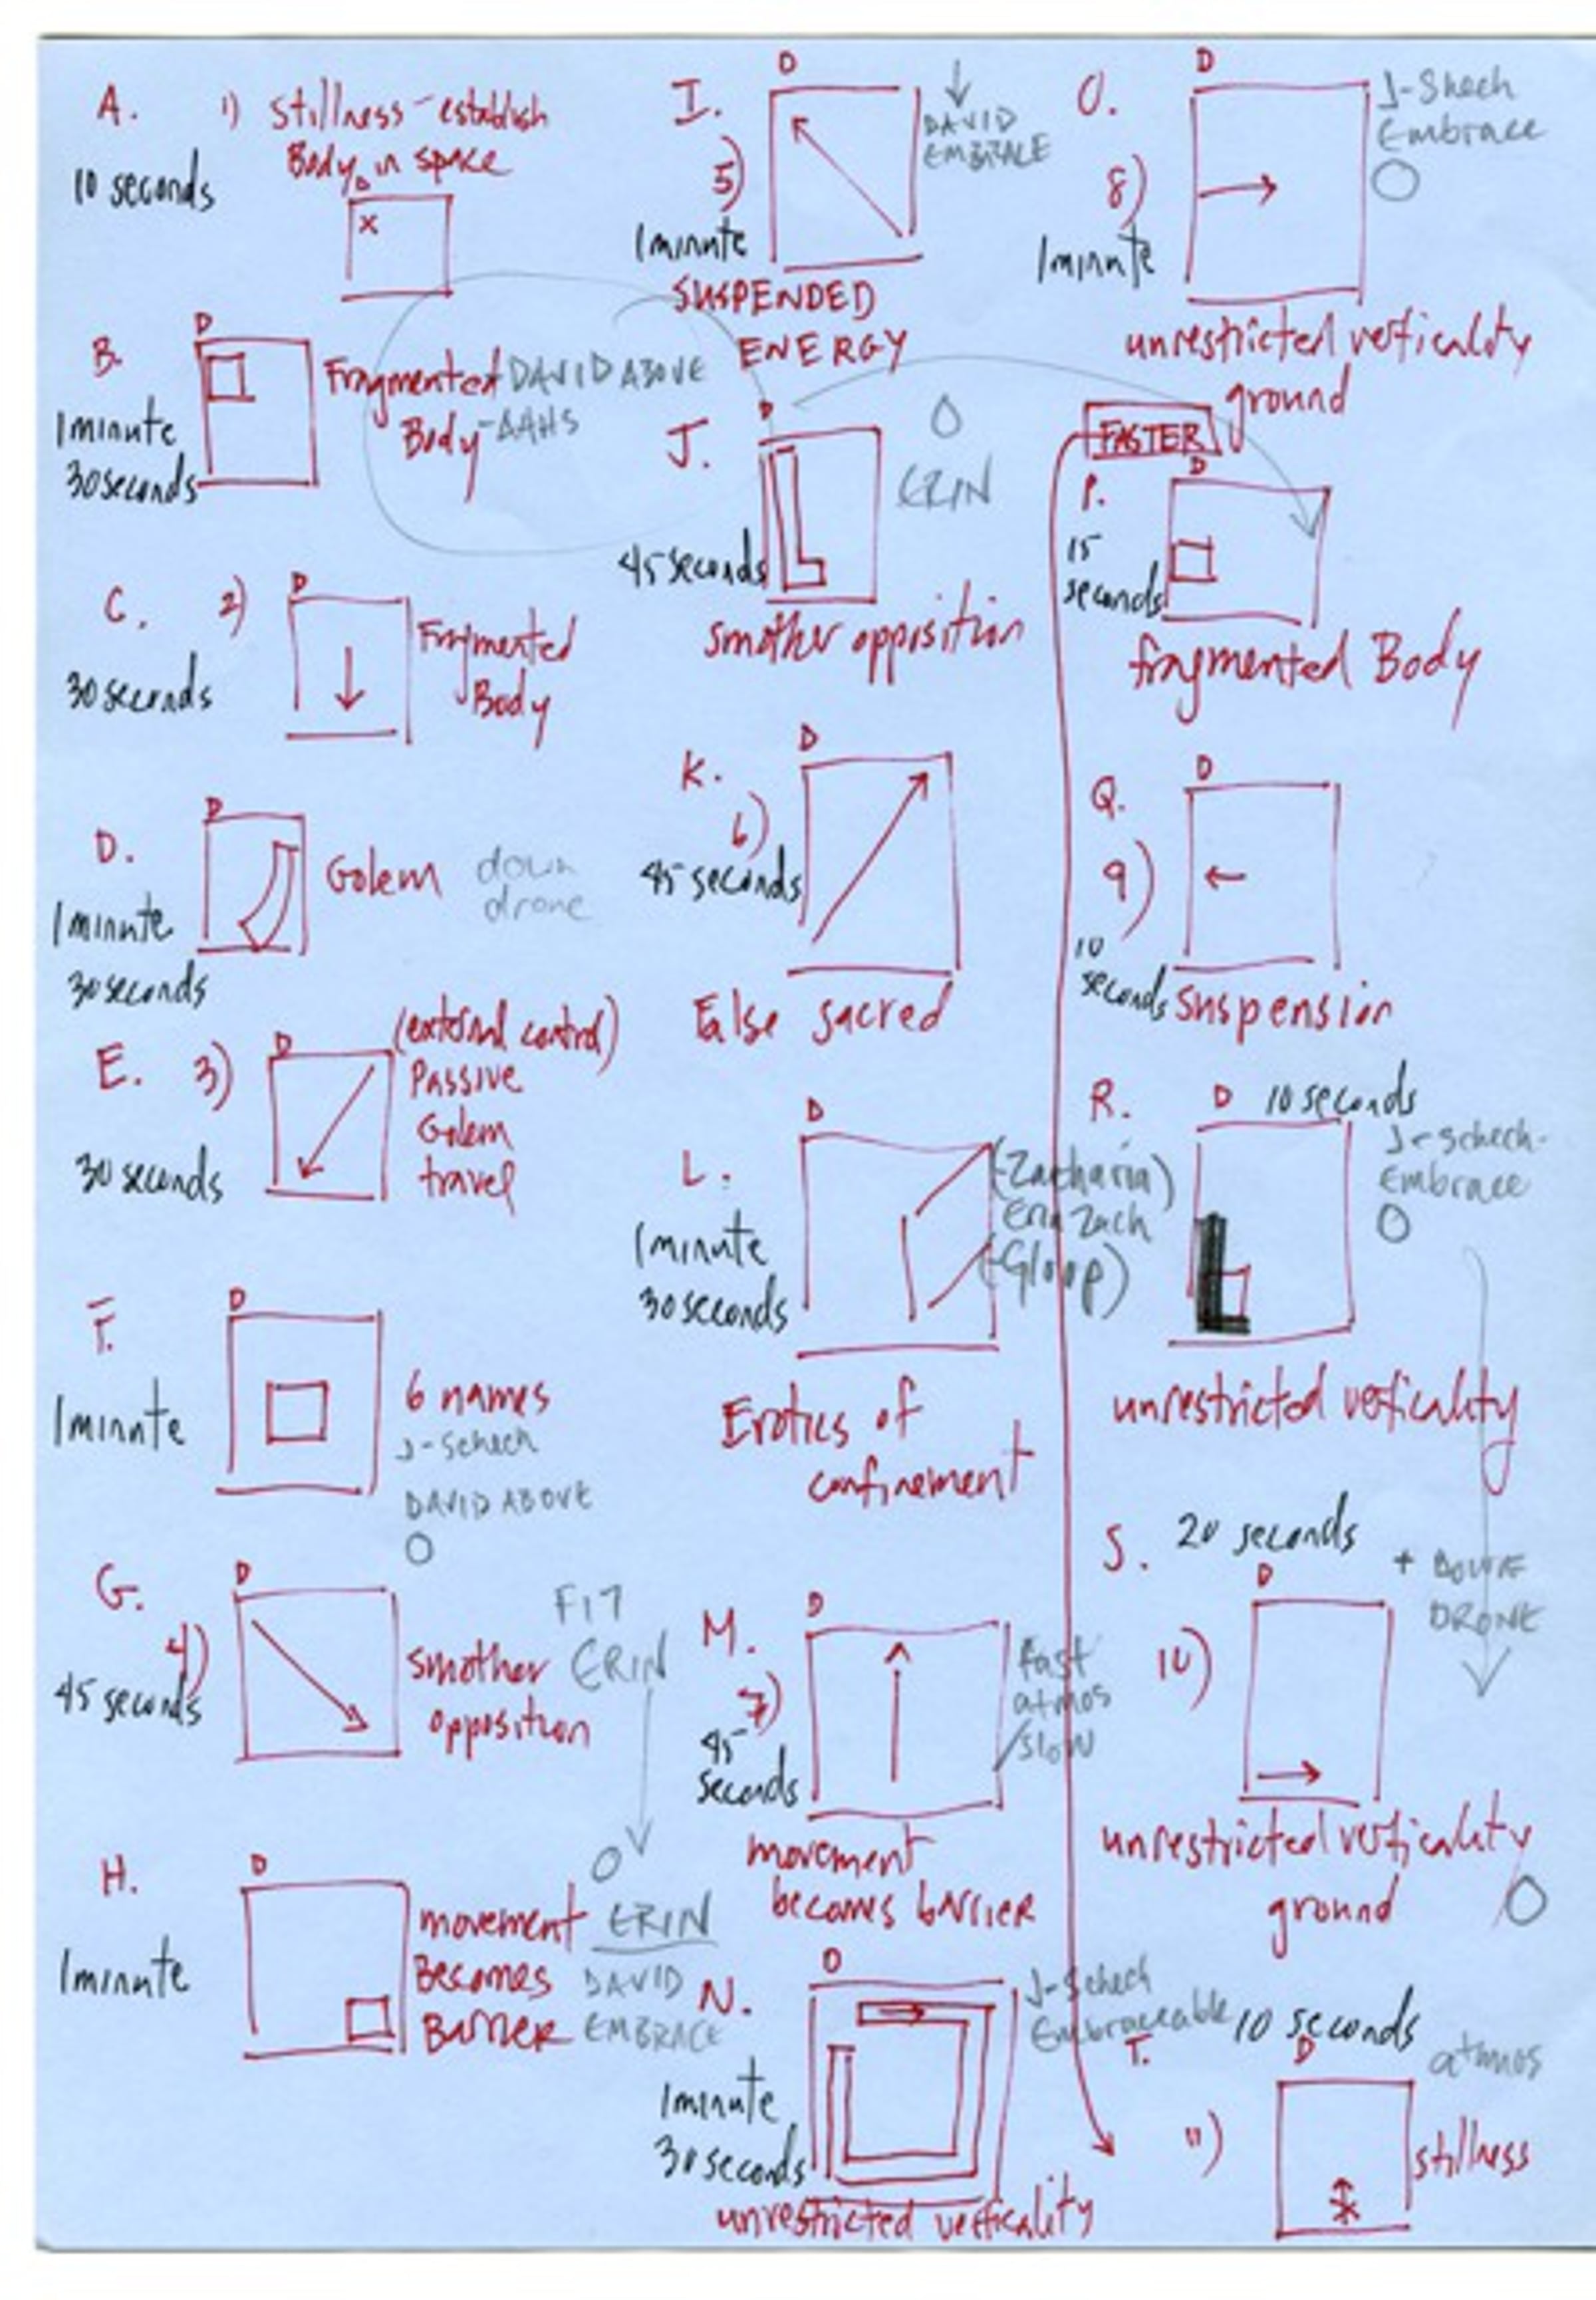 A.
1) stillness - establish
Body in space
10 seconds
x
B.
D
Fragmented
Body
DAVID ABOVE
-AAHS
1 minute
30 seconds
C.
2)
D
Fragmented
Body
30 seconds
D.
D
Golem
down
drone
1 minute
30 seconds
E.
3)
D
(external control)
Passive
Golem
travel
30 seconds
F.
D
1 minute
6 names
J-Schech
DAVID ABOVE
G.
D
4)
45 seconds
smother
opposition
ERIN
H.
D
1 minute
movement
Becomes
Barrier
ERIN
DAVID
EMBRACE
I.
D
5)
1 minute
DAVID
EMBRACE
SUSPENDED
ENERGY
J.
D
ERIN
45 seconds
smother opposition
K.
D
6)
45 seconds
False sacred
L.
D
(-Zacharia)
Erin Zach
(-Gloop)
1 minute
30 seconds
Erotics of
confinement
M.
D
7)
45
seconds
fast
atmos
/slow
movement
becomes barrier
N.
D
J-Schech
Embraceable
1 minute
30 seconds
unrestricted verticality
O.
D
J-Shech
Embrace
8)
1 minute
unrestricted verticality
ground
FASTER
P.
D
15
seconds
fragmented Body
Q.
D
9)
10
seconds
suspension
R.
D
10 seconds
J-schech-
Embrace
unrestricted verticality
S.
20 seconds
D
+
DRONE
10)
unrestricted verticality
ground
T.
10 seconds
D
atmos
11)
stillness